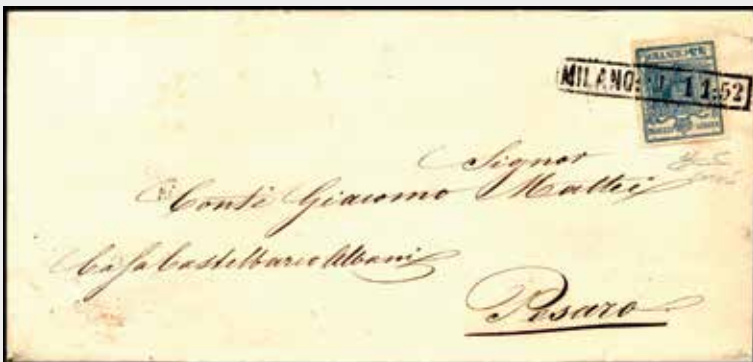 MILANO 11.52
Signor
Conte Giacomo Mattei
Casa Castelbarco Albani
Pesaro